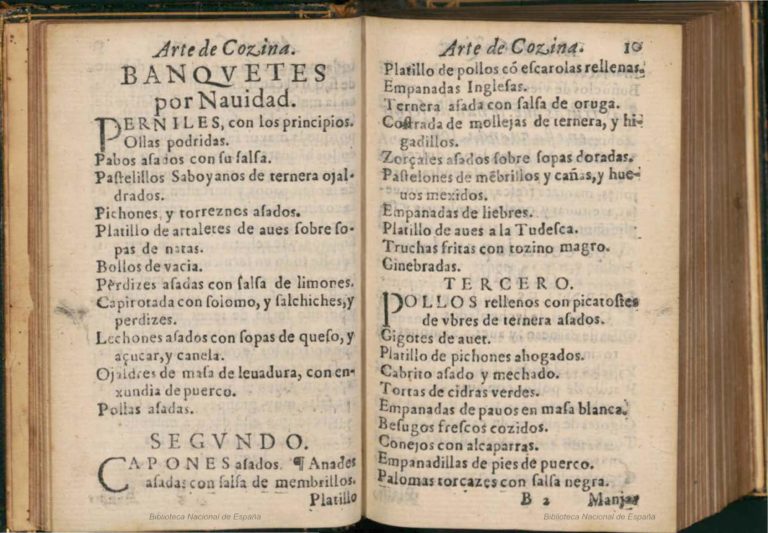 Arte de Cozina.
BANQVETES
por Nauidad.
PERNILES, con los principios.
Ollas podridas.
Pabos aſados con ſu ſalſa.
Paſtelillos Saboyanos de ternera ojal-
drados.
Pichones, y torreznos aſados.
Platillo de artaletes de aues ſobre ſo-
pas de natas.
Bollos de vacia.
Perdizes aſadas con ſalſa de limones.
Capirotada con ſolomo, y ſalchiches, y
perdizes.
Lechones aſados con ſopas de queſo, y
açucar, y canela.
Ojaldres de maſa de leuadura, con en-
xundia de puerco.
Pollas aſadas.
SEGVNDO.
CAPONES aſados. ¶ Anades
aſadas con ſalſa de membrillos.
Platillo
Biblioteca Nacional de España
Arte de Cozina. 10
Platillo de pollos cõ eſcarolas rellenas.
Empanadas Ingleſas.
Ternera aſada con ſalſa de oruga.
Coſtrada de mollejas de ternera, y hi-
gadillos.
Zorçales aſados ſobre ſopas doradas.
Paſtelones de mẽbrillos y cañas, y hue-
uos mexidos.
Empanadas de liebres.
Platillo de aues a la Tudeſca.
Truchas fritas con tozino magro.
Ginebradas.
TERCERO.
POLLOS rellenos con picatoſtes
de vbres de ternera aſados.
Gigotes de auet.
Platillo de pichones ahogados.
Cabrito aſado y mechado.
Tortas de cidras verdes.
Empanadas de pauos en maſa blanca.
Beſugos freſcos cozidos.
Conejos con alcaparras.
Empanadillas de pies de puerco.
Palomas torcazes con ſalſa negra.
B 2 Manjar
Biblioteca Nacional de España